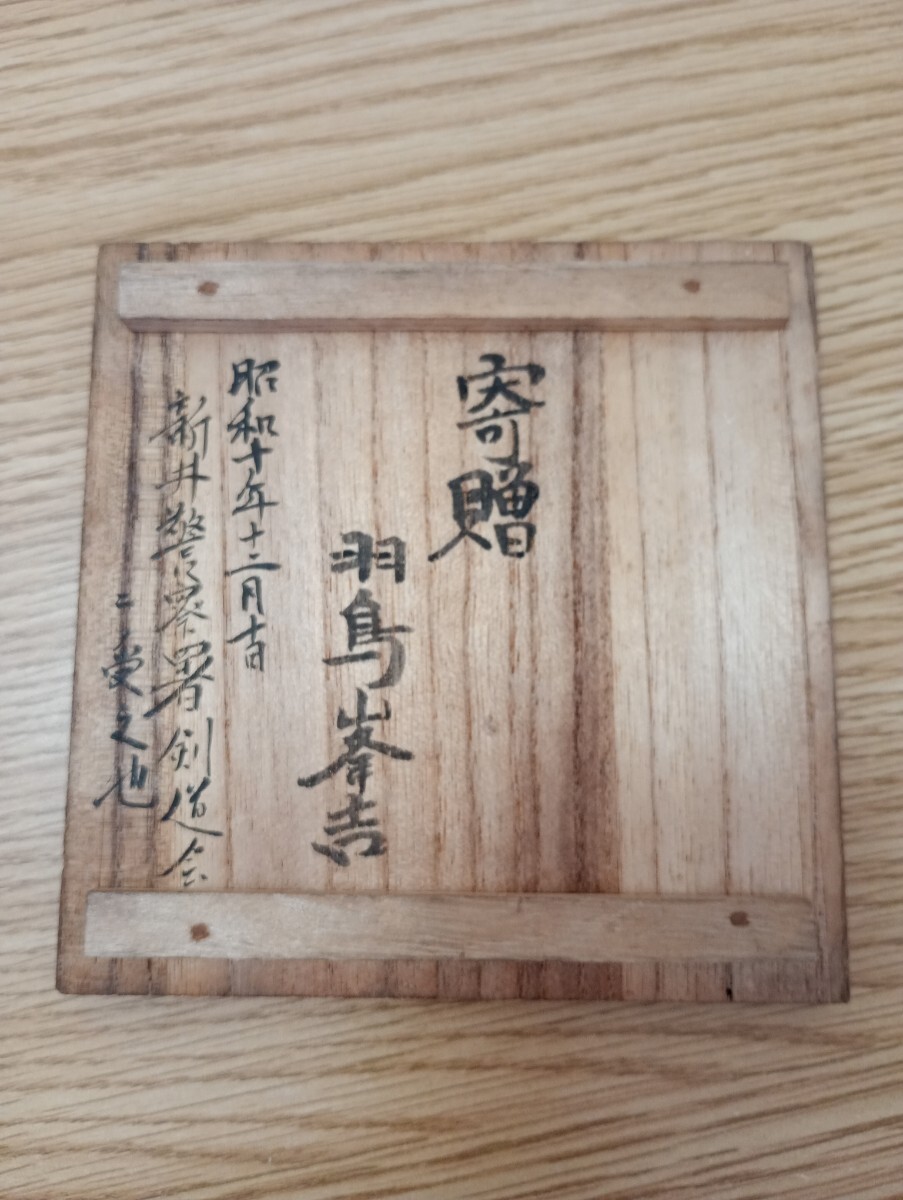 寄贈
羽鳥峯吉
昭和十年十二月十日
新井警察署剣道会
ニ受之也